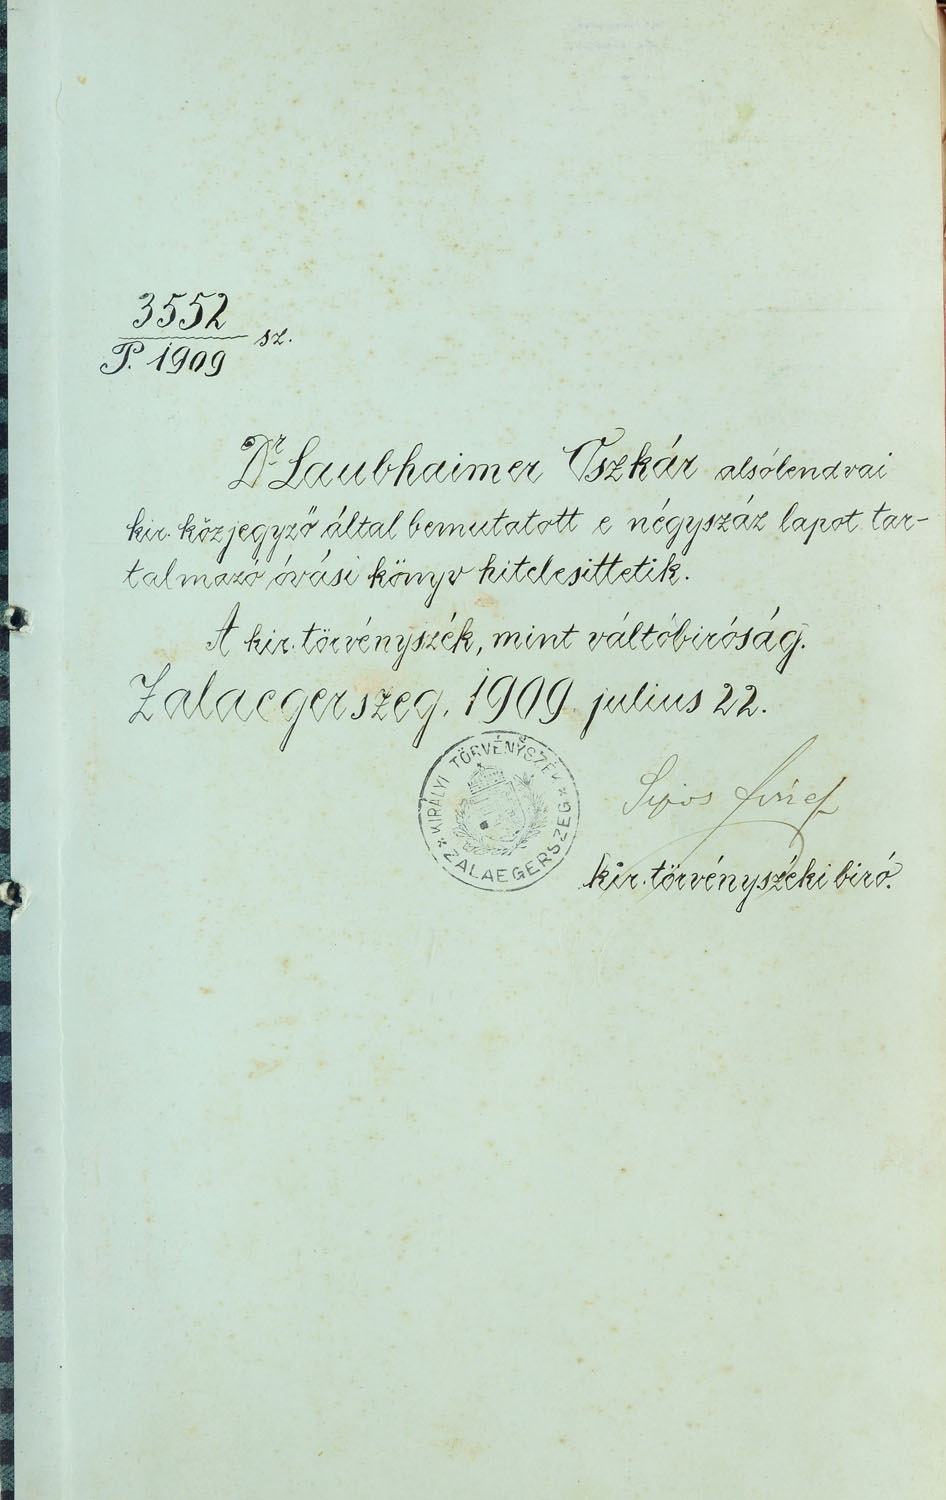 3552
P. 1909 sz.
Dr. Laubhaimer Oszkár alsólendvai
kir. közjegyző által bemutatott e négyszáz lapot tar-
talmazó óvási könyv hitelesittetik.
A kir. törvényszék, mint váltóbiróság.
Zalaegerszeg, 1909. julius 22.
KIRÁLYI TÖRVÉNYSZÉK
ZALAEGERSZEG
kir. törvényszéki biró.